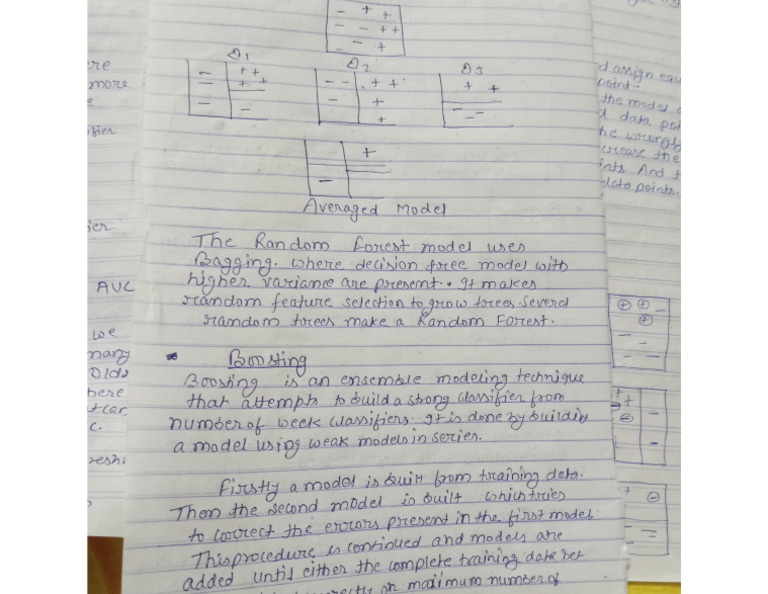 - + +
- - + +
- - +
D1 D2 D3
- + + - - + + + +
+ + - + - -
- - + -
+
-
Averaged Model
The Random Forest model uses
Bagging. where decision tree model with
higher variance are present. It makes
random feature selection to grow trees. Several
random trees make a Random Forest.
* Boosting
Boosting is an ensemble modeling technique
that attempts to build a strong classifier from
number of week classifiers. It is done by building
a model using weak models in series.
Firstly a model is built from training data.
Then the second model is built which tries
to correct the errors present in the first model.
This procedure is continued and models are
added until either the complete training data set
maximum number of
ere
more
e
ifier
ier
AUC
we
nary
olds
here
C.
d assign equ
point.
the model
d data poi
be wrongly
crease the
ints. And
data points.
⊕ ⊕ -
⊕
- -
- -
+
+ -
⊖ -
+ ⊖
- -
-